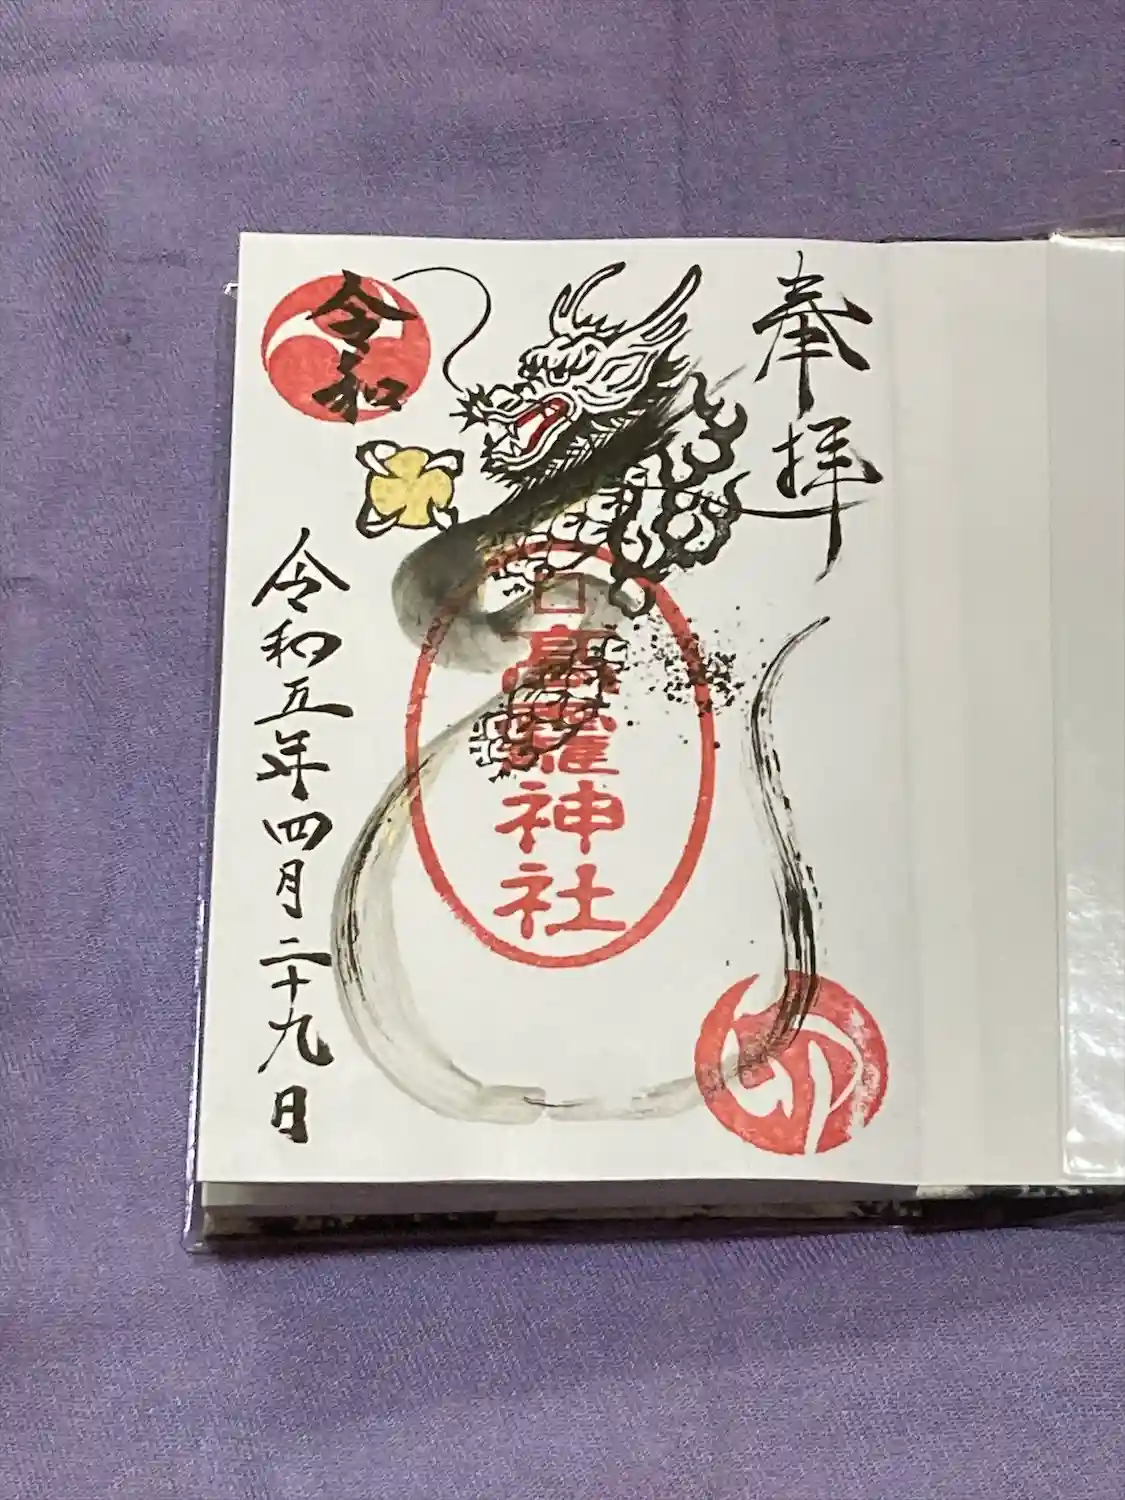 奉拝
高羅神社
卯
令和
令和五年四月二十九日